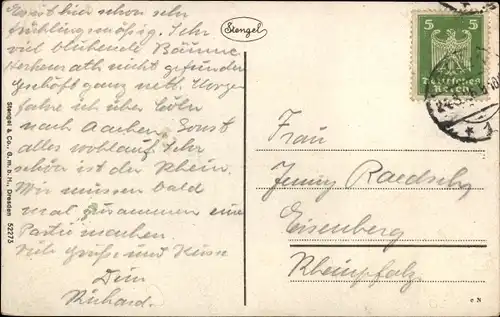 Es ist hier schon sehr
frühlingsmäßig. Sehr
viel blühende Bäume.
nicht gefunden
Geschäft ganz nett. Morgen
fahre ich über Cöln
nach Aachen. Sonst
alles wohlauf. Sehr
schön ist der Rhein.
Wir müssen bald
mal zusammen eine
Partie machen.
Viele Grüße und Küsse
Dein
Richard.
Stengel
Stengel & Co., G. m. b. H., Dresden 52273
5 5
Deutsches
Reich
Frau
Jenny
Eisenberg
Rheinpfalz